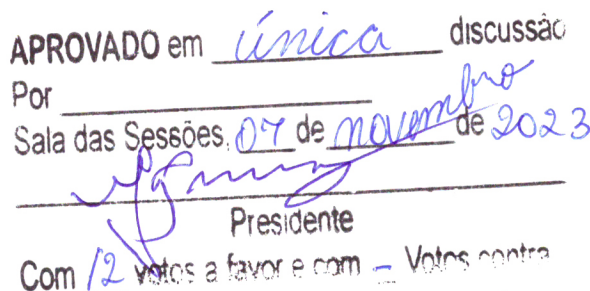 APROVADO em única discussão
Por
Sala das Sessões, 07 de novembro de 2023
Presidente
Com 12 votos a favor e com - Votos contra